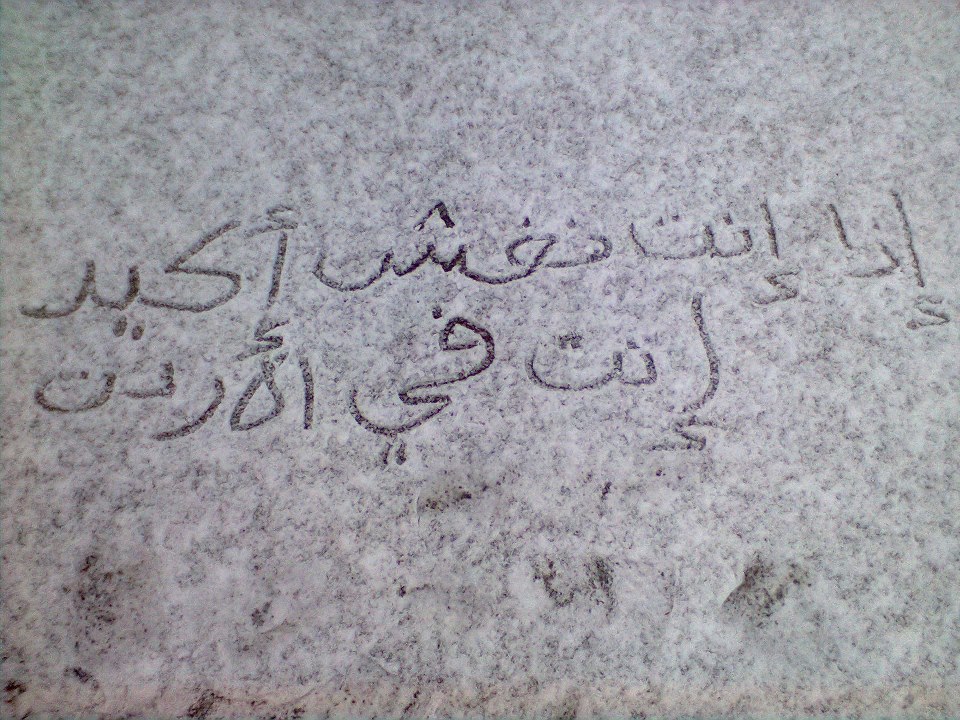 إذا إنت أكيد
إنت في الأردن